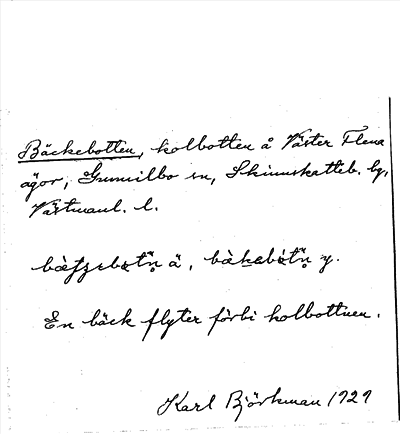 Bäckebotten, kolbotten å Väster Flena
ägor, Gunnilbo sn, Skinnskatteb. bg,
Västmanl. l.
ä, y.
En bäck flyter förbi kolbottnen.
Karl Björkman 1929